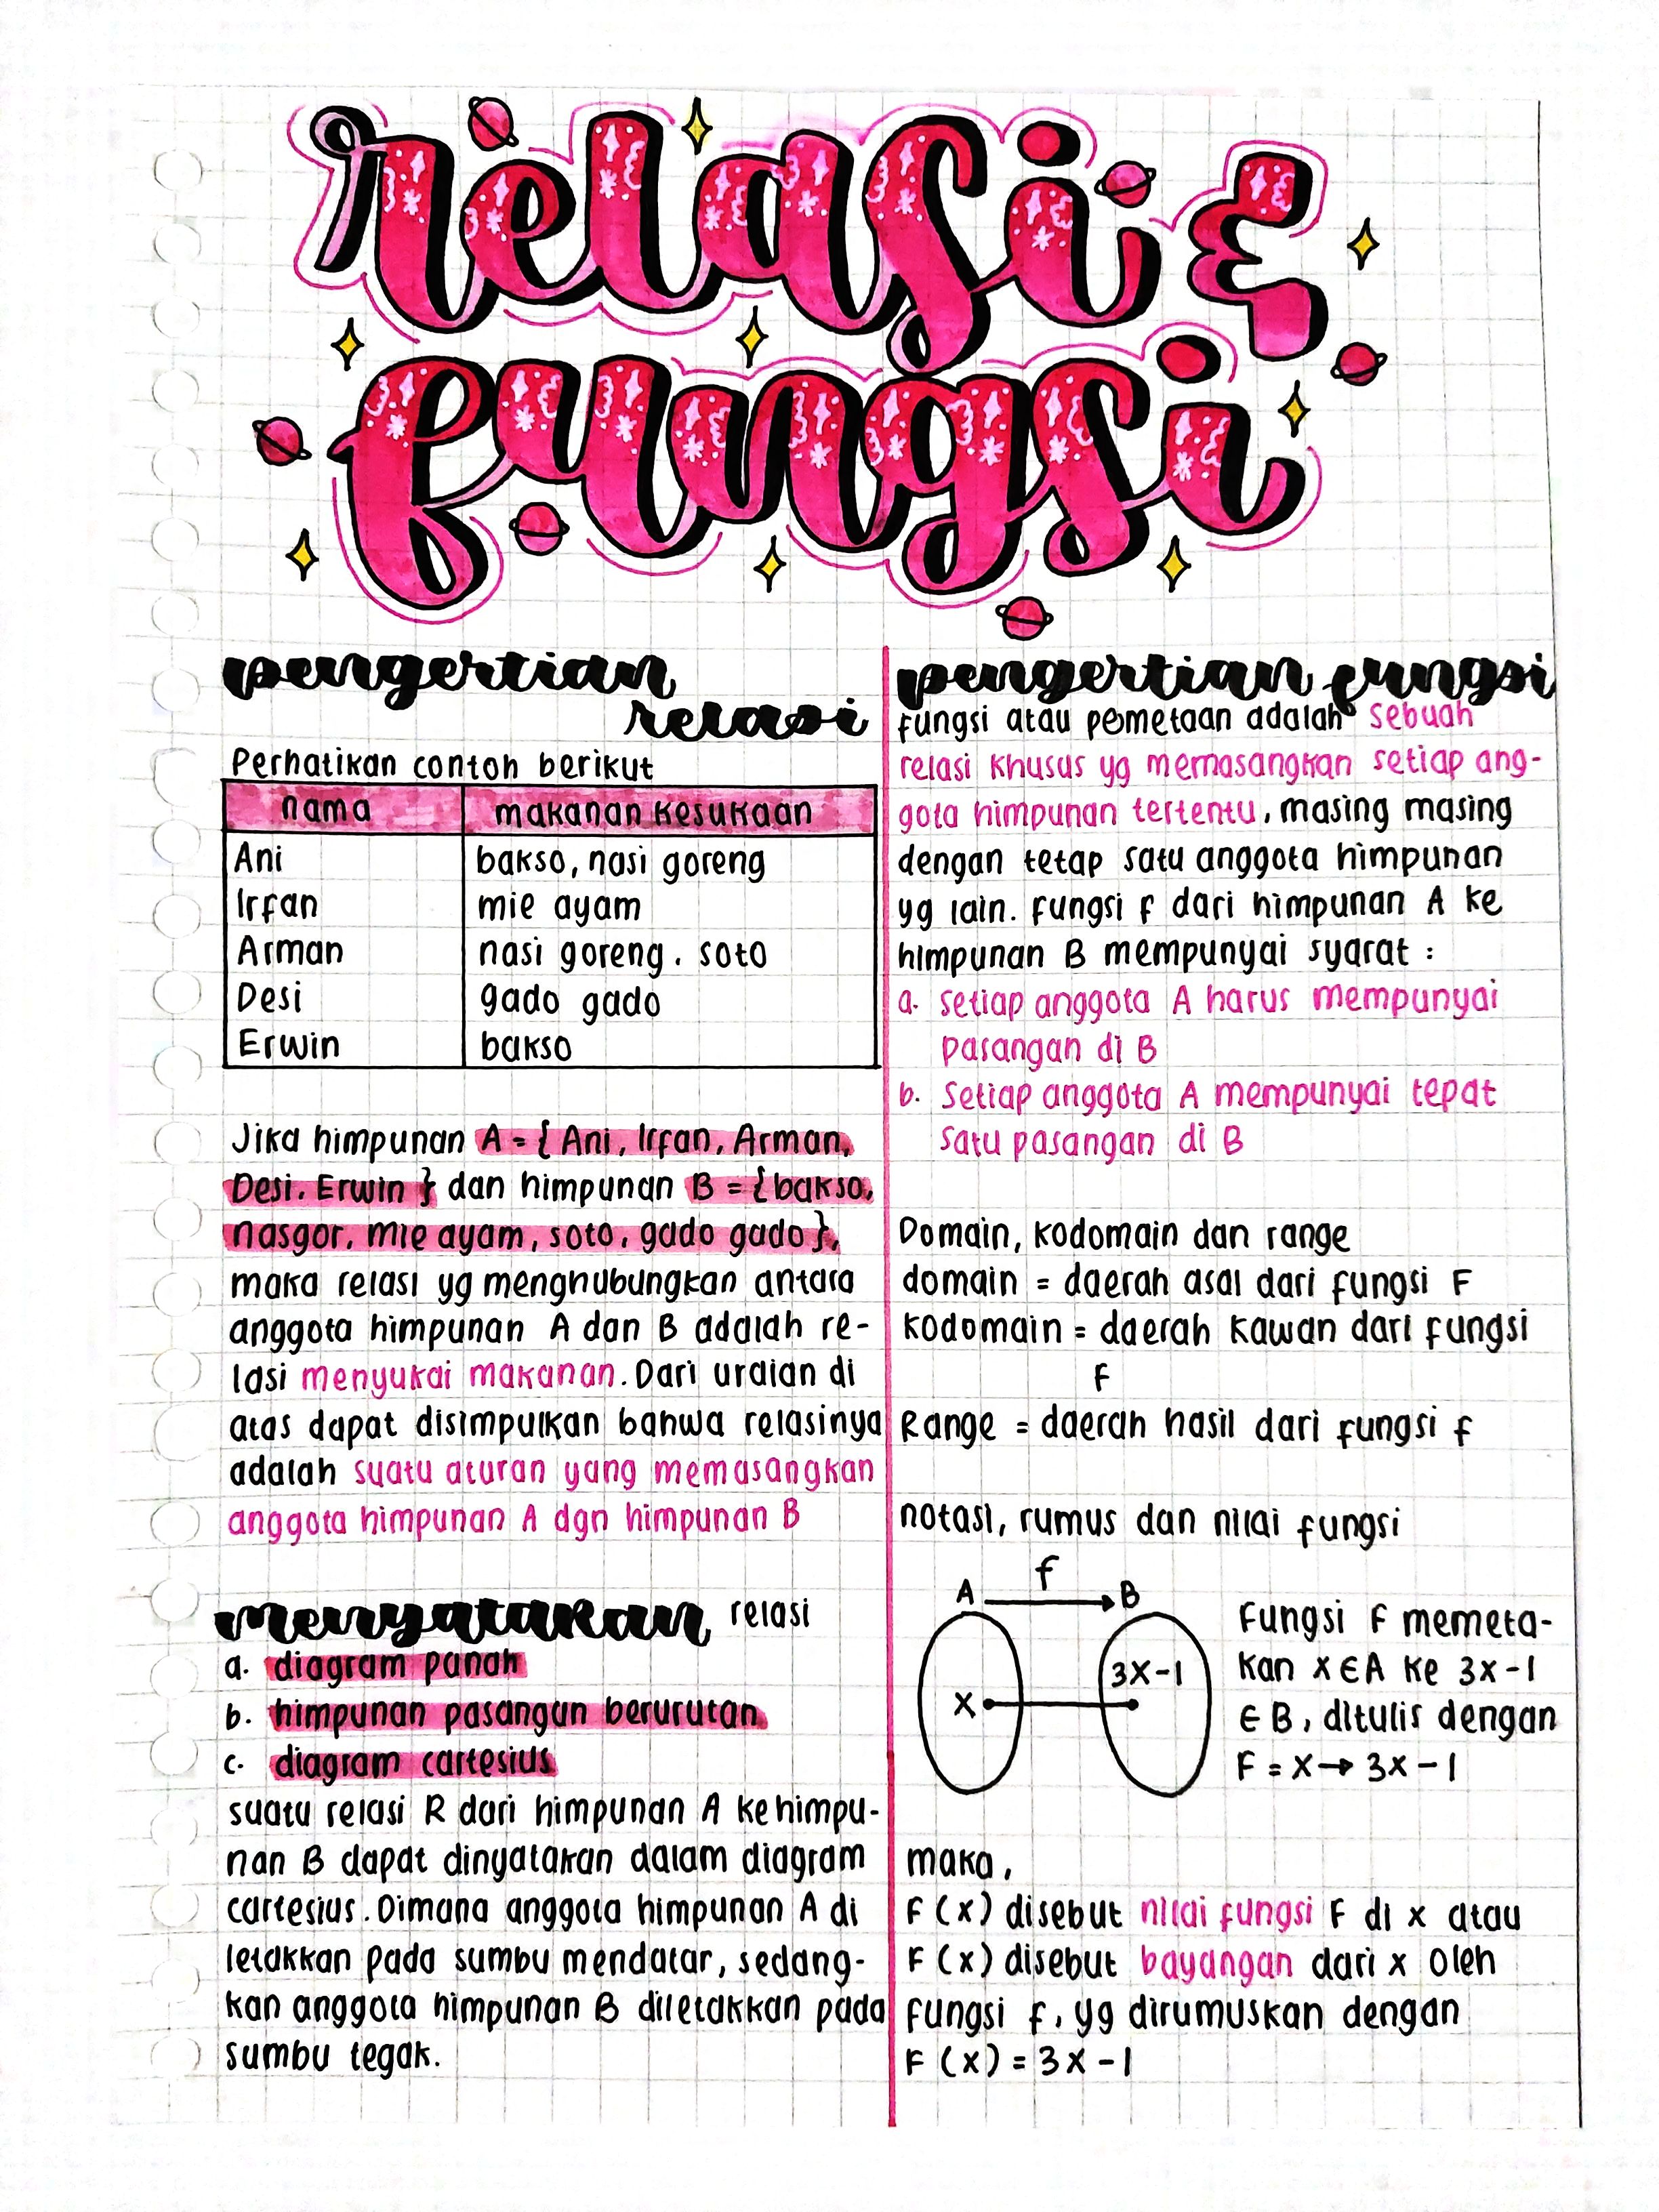 relasi &
fungsi
pengertian
relasi
Perhatikan contoh berikut
nama makanan kesukaan
Ani bakso, nasi goreng
Irfan mie ayam
Arman nasi goreng, soto
Desi gado gado
Erwin bakso
Jika himpunan A = { Ani, Irfan, Arman,
Desi, Erwin } dan himpunan B = { bakso,
nasgor, mie ayam, soto, gado gado },
maka relasi yg menghubungkan antara
anggota himpunan A dan B adalah re-
lasi menyukai makanan. Dari uraian di
atas dapat disimpulkan bahwa relasinya
adalah suatu aturan yang memasangkan
anggota himpunan A dgn himpunan B
menyatakan relasi
a. diagram panah
b. himpunan pasangan berurutan
c. diagram cartesius
suatu relasi R dari himpunan A ke himpu-
nan B dapat dinyatakan dalam diagram
cartesius. Dimana anggota himpunan A di
letakkan pada sumbu mendatar, sedang-
kan anggota himpunan B diletakkan pada
sumbu tegak.
pengertian fungsi
fungsi atau pemetaan adalah sebuah
relasi khusus yg memasangkan setiap ang-
gota himpunan tertentu, masing masing
dengan tetap satu anggota himpunan
yg lain. fungsi f dari himpunan A ke
himpunan B mempunyai syarat :
a. setiap anggota A harus mempunyai
pasangan di B
b. Setiap anggota A mempunyai tepat
satu pasangan di B
Domain, kodomain dan range
domain = daerah asal dari fungsi F
kodomain = daerah kawan dari fungsi
F
Range = daerah hasil dari fungsi f
notasi, rumus dan nilai fungsi
f
A B
3x-1
x
Fungsi F memeta-
kan x∈A ke 3x-1
∈ B, ditulis dengan
F = x → 3x - 1
maka,
F (x) disebut nilai fungsi F di x atau
F (x) disebut bayangan dari x oleh
fungsi f, yg dirumuskan dengan
F (x) = 3x - 1